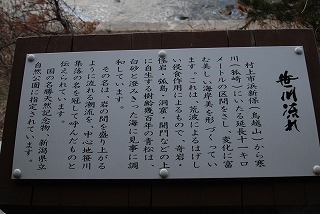 笹川流れ
村上市浜新保(鳥越山)から寒
川(狐崎)にいたる延長十一キロ
メートルの区間をさし、変化に富
む美しい海岸美を形づくってい
ます。これは、荒波によるはげし
い侵食作用によるもので、奇岩・
怪岩・孤島・洞窟・洞門などの上
に自生する樹齢幾百年の青松は、
白砂と澄みきった海に見事に調
和しています。
その名は、岩の間を盛り上がる
ように流れる潮流を、中心地笹川
集落の名を冠して呼んだものと
伝えられています。
国の名勝天然記念物、新潟県立
自然公園に指定されています。